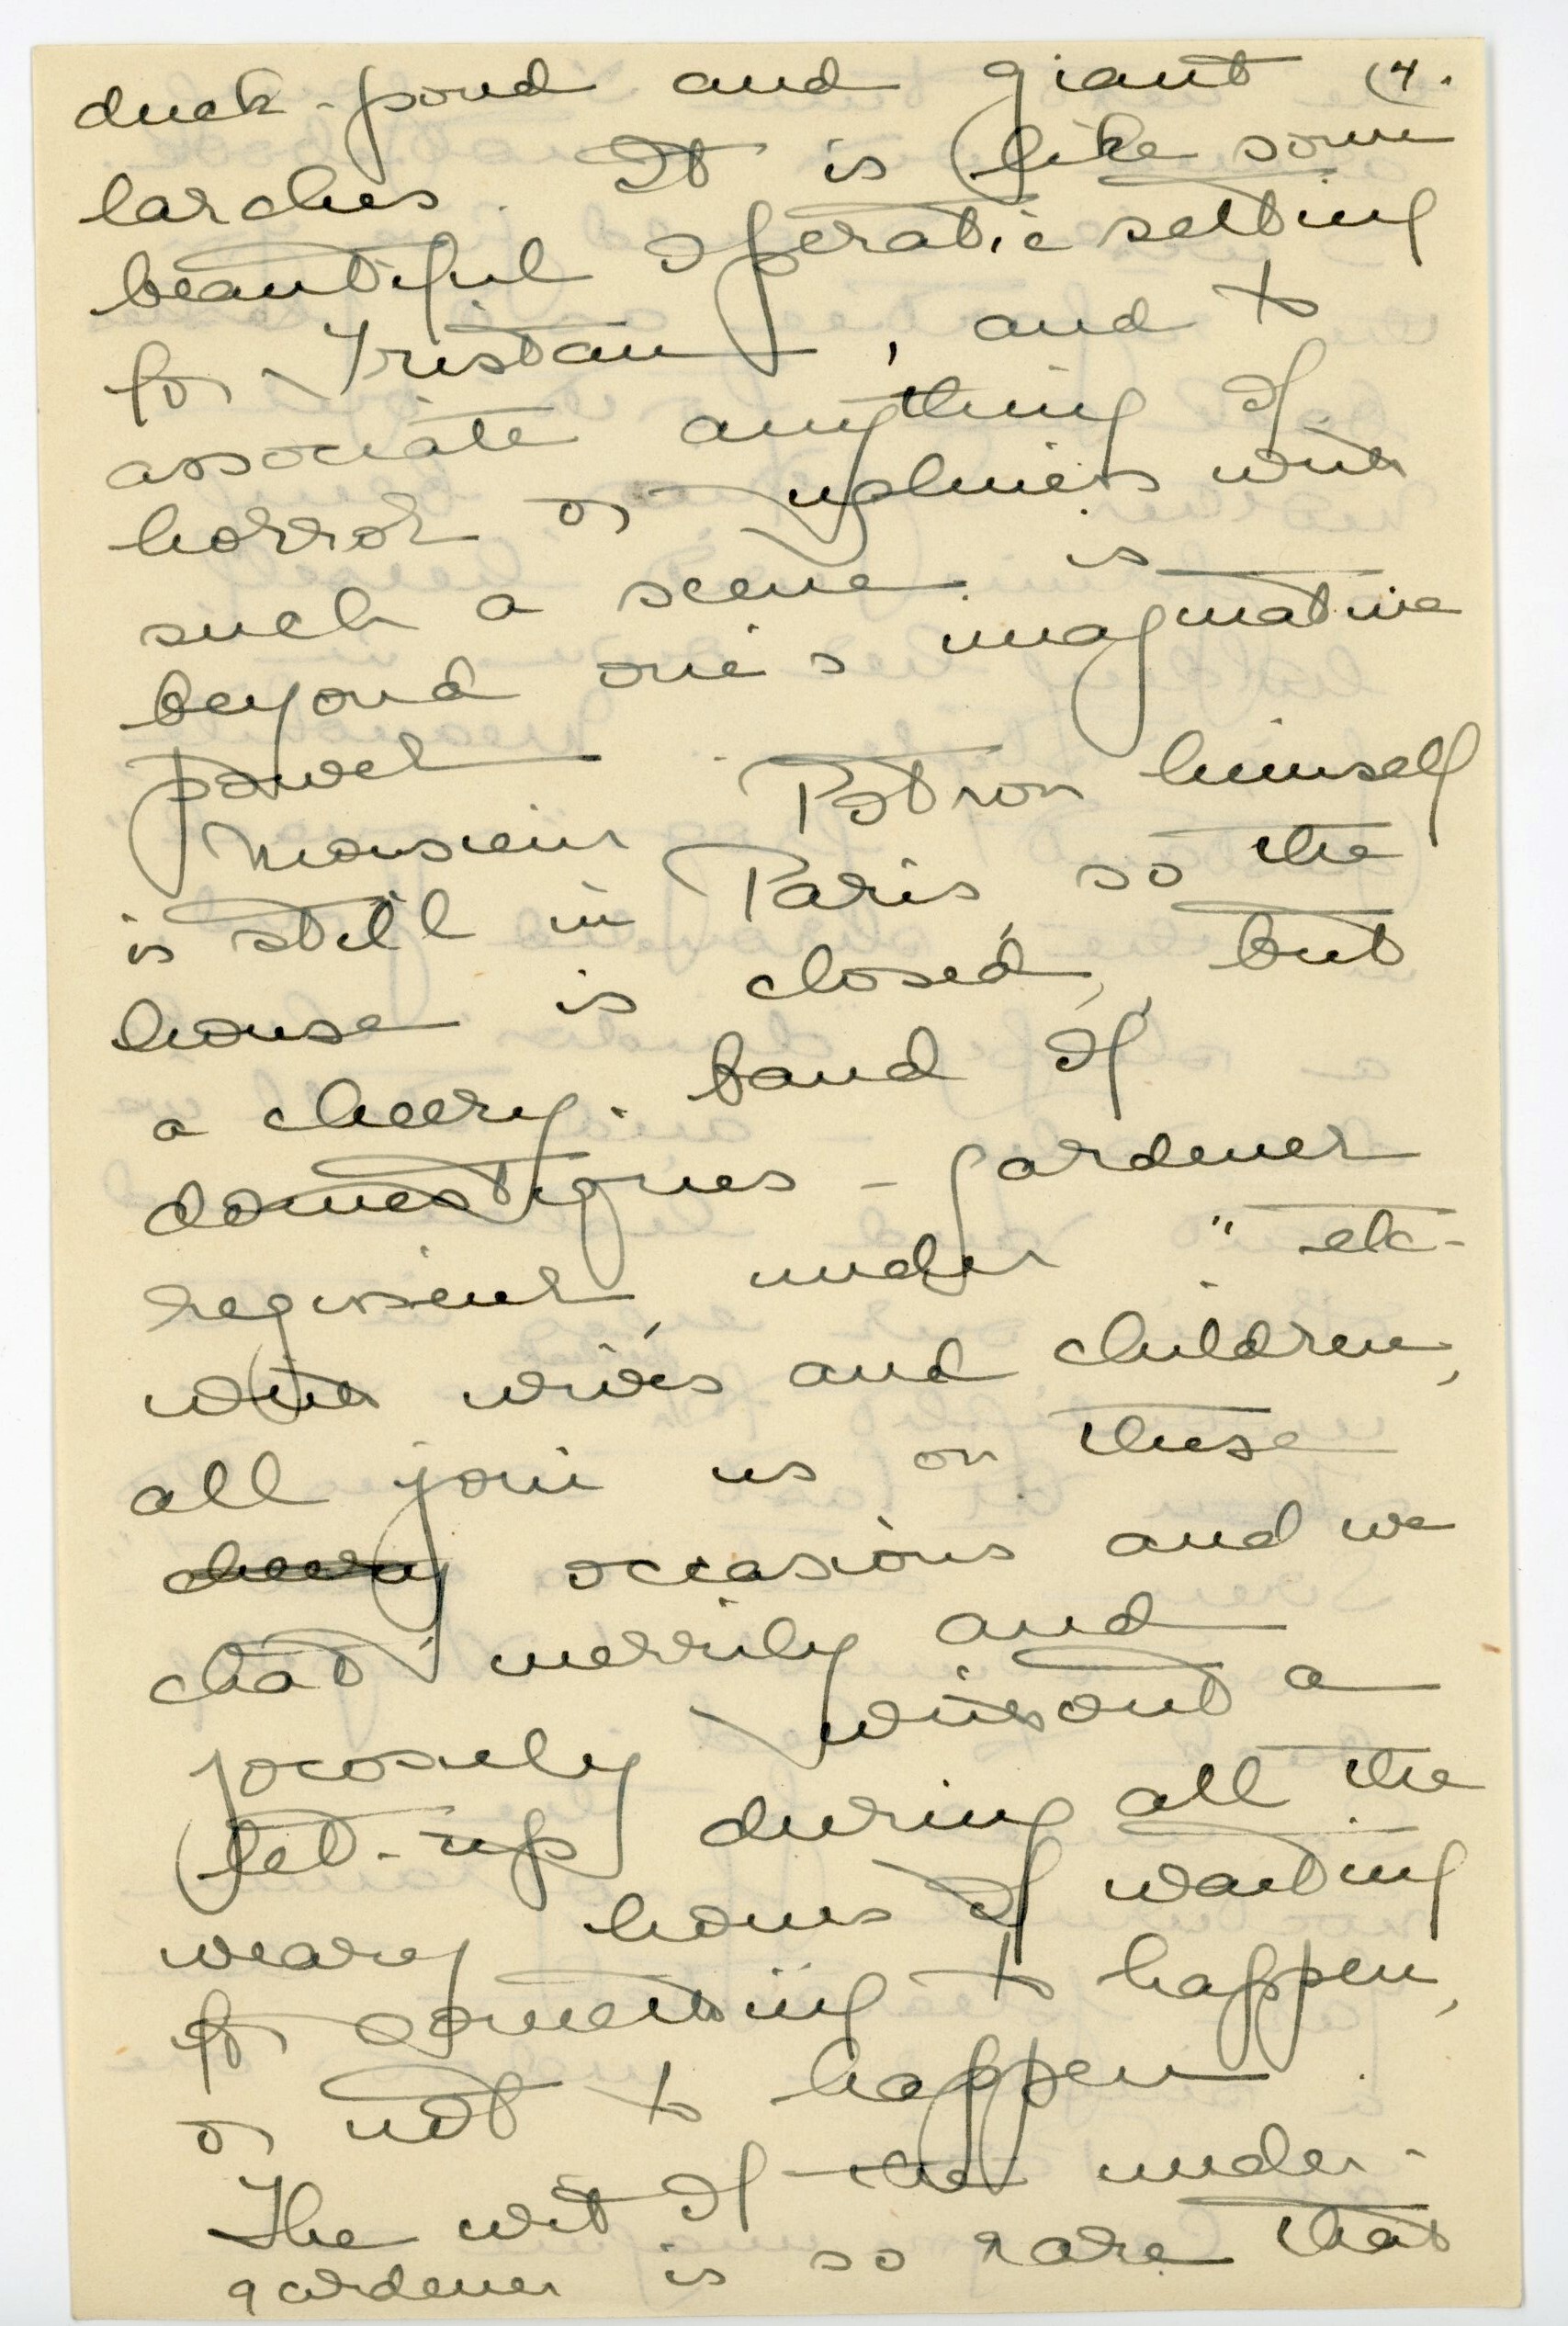 duck-pond and giant (4.
larches. It is like some
beautiful operatic setting
for Tristan, and to
associate anything of
horror or ugliness with
such a scene is
beyond one's imaginative
power.
Monsieur Potron himself
is still in Paris, so the
house is closed, but
a cheery band of
domestiques - gardener
regisseur, under " etc-
with wives and children,
all join us on these
cheery occasions and we
chat merrily and
jocosely without a
let-up during all the
weary hours of waiting
for something to happen,
or not to happen.
The wit of the under-
gardener is so rare that